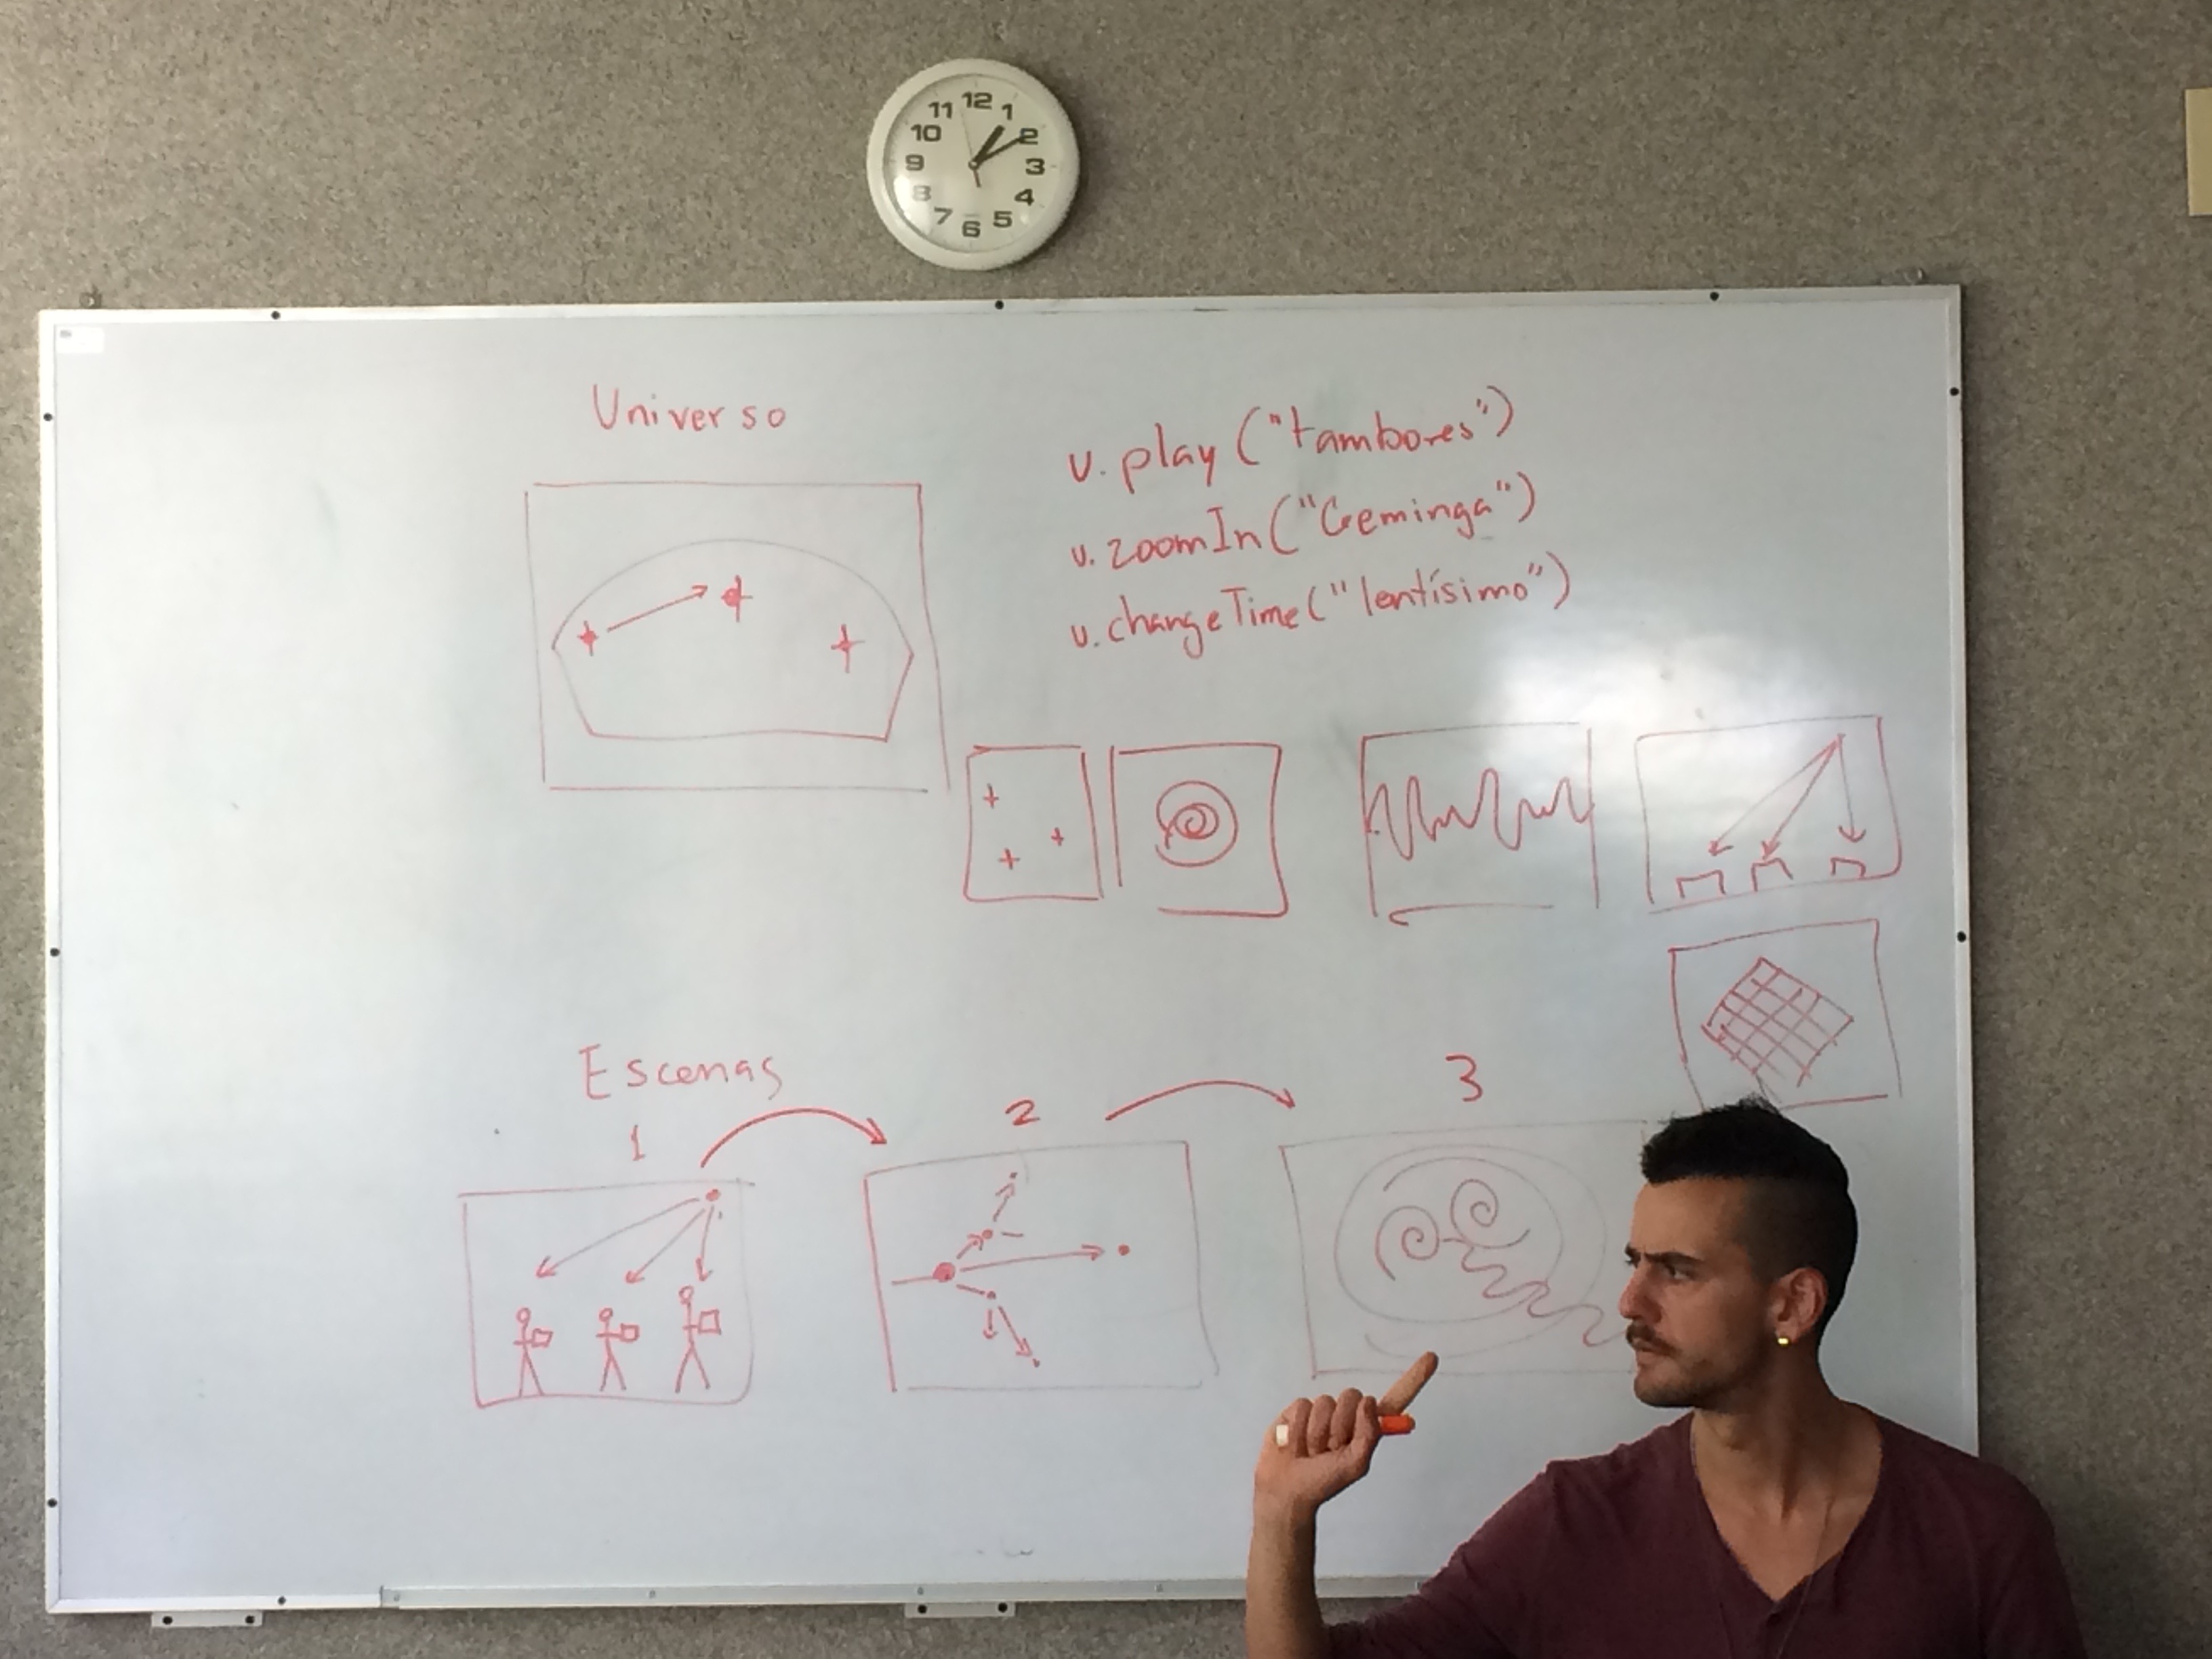 12
11 1
10 2
9 3
8 4
7 5
6
Universo
u.play("tambores")
u.zoomIn("Geminga")
u.changeTime("lentísimo")
Escenas
1 2 3